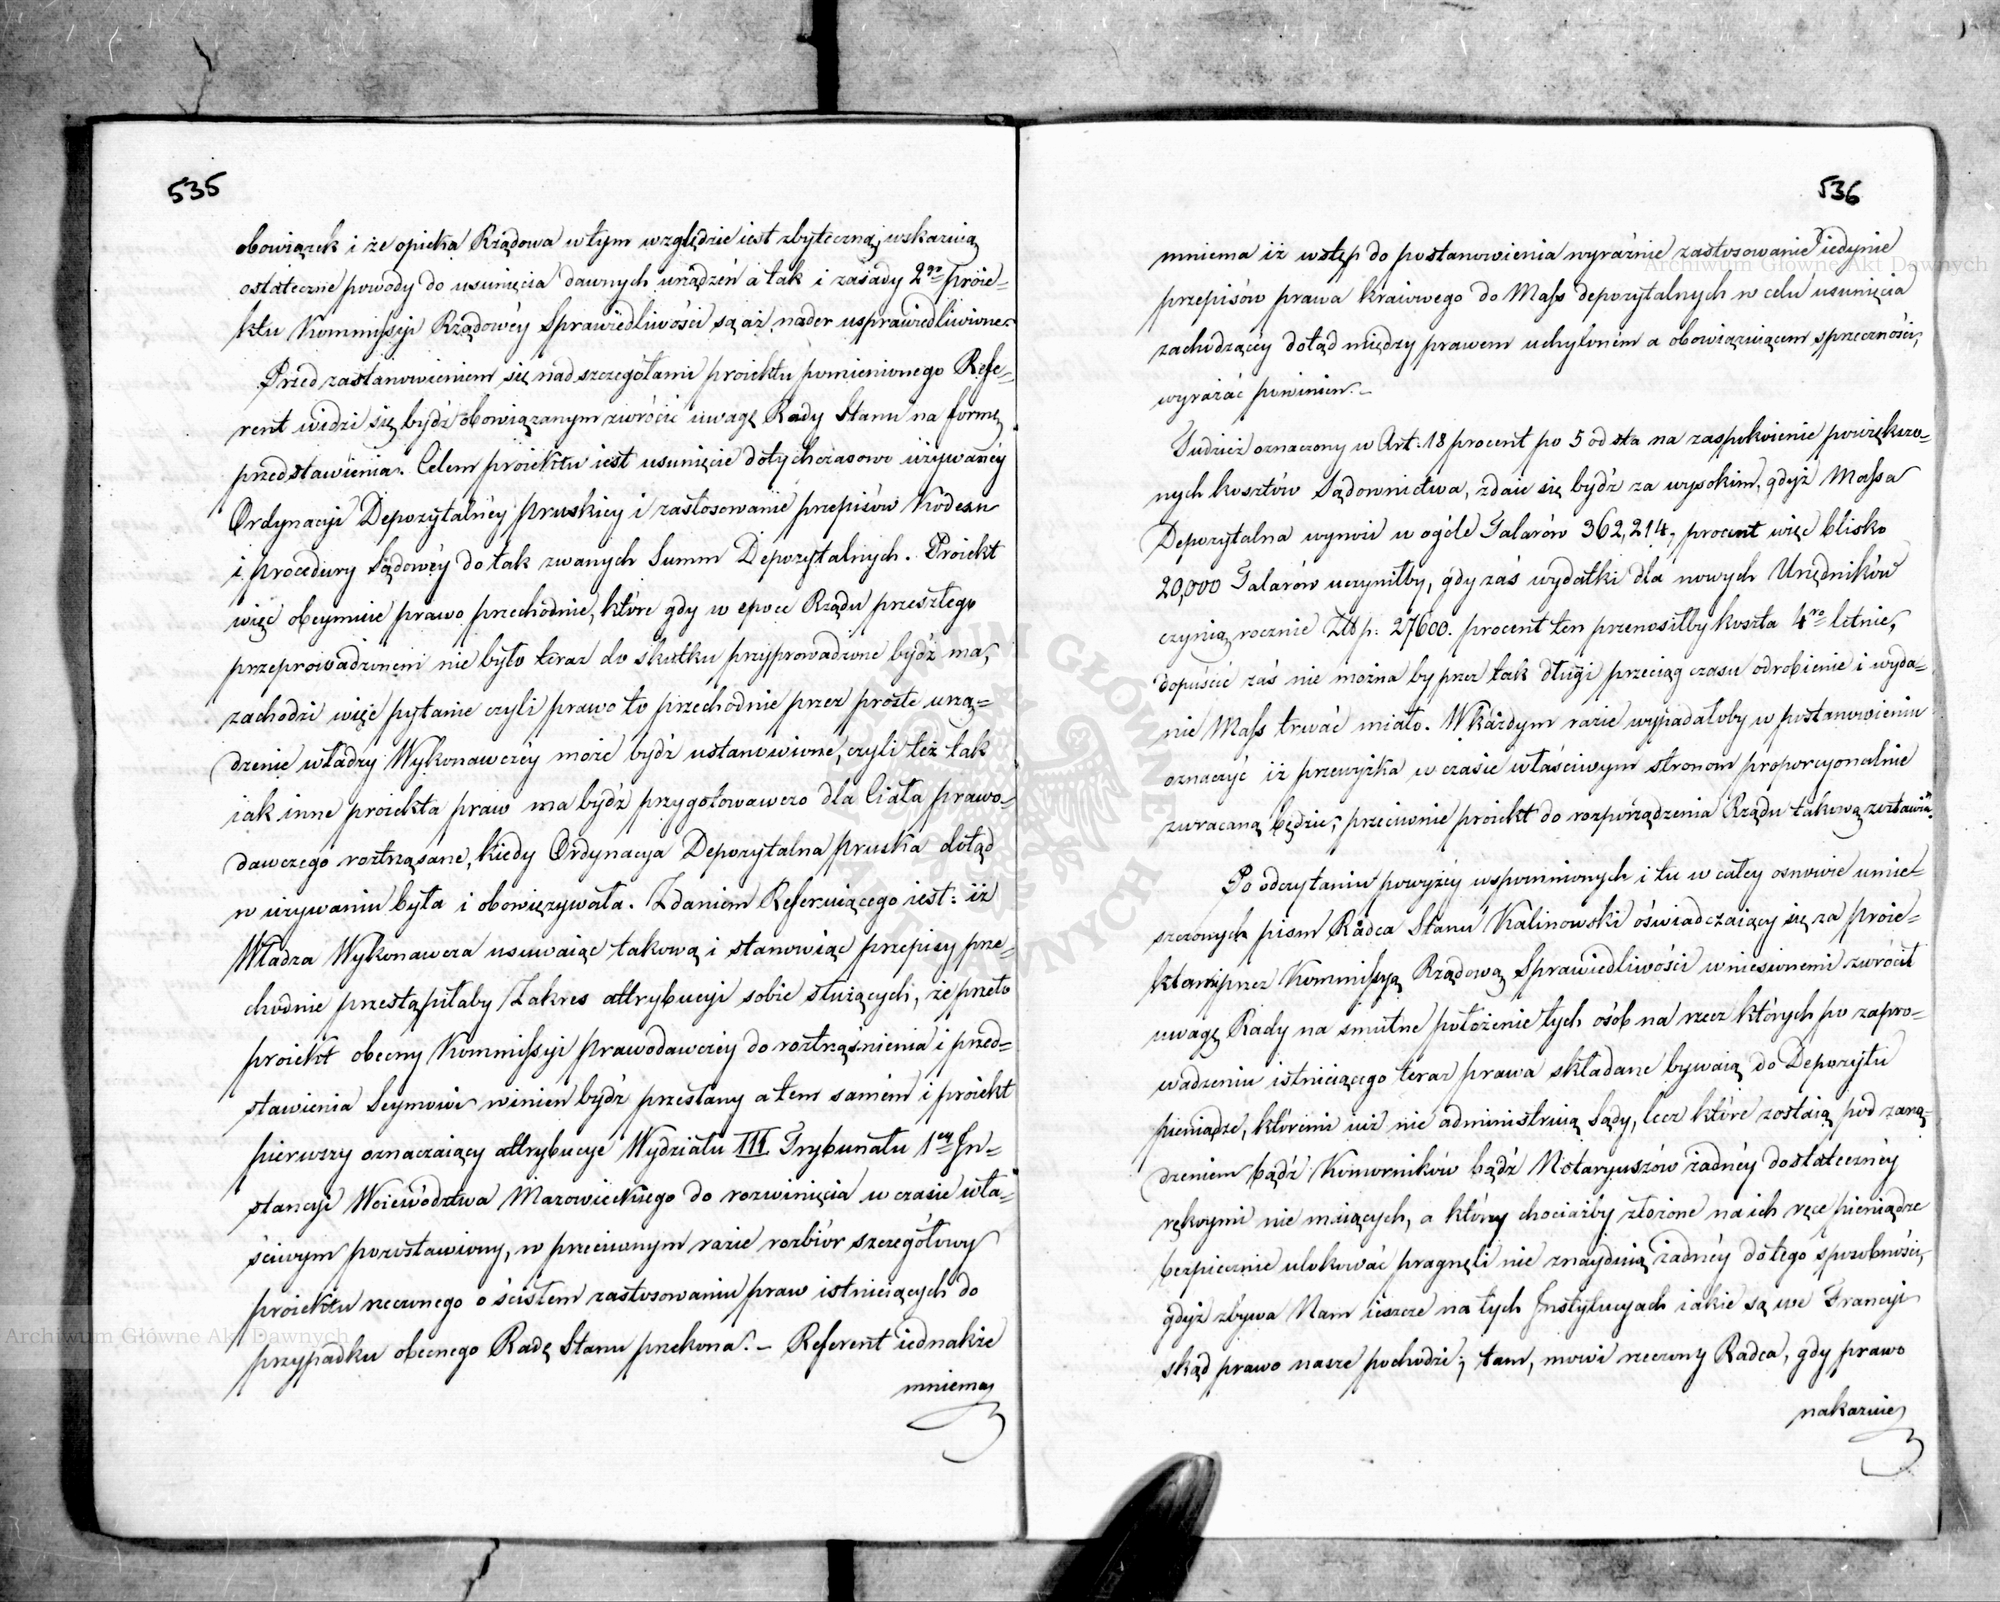 535
obowiązek i że opieka Rządowa w tym względzie iest zbyteczną, wskazuią
ostateczne powody do usunięcia dawnych urządzeń a tak i zasady 2go proie-
ktu Kommissyi Rządowéy Sprawiedliwości są aż nader usprawiedliwione.
Przed zastanowieniem się nad szczegółami proiektu pomienionego Refe-
rent widzi się bydź obowiązanym zwrócić uwagę Rady Stanu na formę
przedstawienia. Celem proiektu iest usunięcie dotychczasowo używanéy
Ordynacyi Depozytalnéy pruskiey i zastosowanie przepisów Kodexu
i procedury Sądowéy do tak zwanych Summ Depozytalnych. Proiekt
więc obeymuie prawo przechodnie, które gdy w epoce Rządu przeszłego
przeprowadzonem nie było teraz do skutku przyprowadzone bydź ma,
zachodzi więc pytanie czyli prawo to przechodnie przez proste urzą-
dzenie władzy Wykonawczéy może bydź ustanowione, czyli też tak
iak inne proiekta praw ma bydź przygotowawczo dla Ciała prawo-
dawczego roztrząsane, kiedy Ordynacya Depozytalna pruska dotąd
w używaniu była i obowięzywała. Zdaniem Referuiącego iest: iż
Władza Wykonawcza usuwaiąc takową i stanowiąc przepisy prze-
chodnie przestąpiłaby Zakres attrybucyi sobie służących, że przeto
proiekt obecny Kommissyi prawodawczey do roztrząśnienia i przed-
stawienia Seymowi winien bydź przesłany a tem samem i proiekt
pierwszy oznaczaiący attrybucye Wydziału III Trybunału 1ey In-
stancyi Woiewództwa Mazowieckiego do rozwinięcia w czasie wła-
ściwym pozostawiony, w przeciwnym razie rozbiór szczegółowy
proiektu rzeczonego o ścisłem zastosowaniu praw istnieiących do
przypadku obecnego Radę Stanu przekona. – Referent iednakże
mniema
536
mniema iż wstęp do postanowienia wyraźnie zastosowanie iedynie
przepisów prawa kraiowego do Mass depozytalnych w celu usunięcia
zachodzącéy dotąd między prawem uchylonem a obowiązuiącem sprzeczności,
wyrażać powinien. –
Tudzież oznaczony w Art: 18 procent po 5 od sta na zaspokoienie powiększo-
nych kosztów Sądownictwa, zdaie się bydź za wysokim, gdyż Massa
Depozytalna wynosi w ogóle Talarów 362,214, procent więc blisko
20,000 Talarów uczyniłby, gdy zaś wydatki dla nowych Urzędników
czynią rocznie Złp: 27600. procent ten przenosiłby koszta 4ro letnie,
dopuścić zaś nie można by przez tak długi przeciąg czasu odrobienie i wyda-
nie Mass trwać miało. W każdym razie wypadałoby w postanowieniu
oznaczyć iż przewyżka w czasie właściwym stronom proporcyonalnie
zwracaną będzie, przeciwnie proiekt do rozporządzenia Rządu takową zostawia.
Po odczytaniu powyżéy wspomnionych i tu w całey osnowie umie-
szczonych pism Radca Stanu Kalinowski oświadczaiący się za proie-
ktami przez Kommissyą Rządową Sprawiedliwości wniesionemi zwrócił
uwagę Rady na smutne położenie tych osób na rzecz których po zapro-
wadzeniu istnieiącego teraz prawa składane bywaią do Depozytu
pieniądze, któremi iuż nie administruią Sądy, lecz które zostaią pod zarzą-
dzeniem bądź Komorników bądź Notaryuszów żadnéy dostatecznéy
rękoymi nie maiących, a którzy chociażby złożone na ich ręce pieniądze
bezpiecznie ulokować pragnęli nie znayduią żadnéy do tego sposobności,
gdyż zbywa Nam ieszcze na tych Instytucyach iakie są we Francyi
skąd prawo nasze pochodzi; tam, mowi rzeczony Radca, gdy prawo
nakazuie